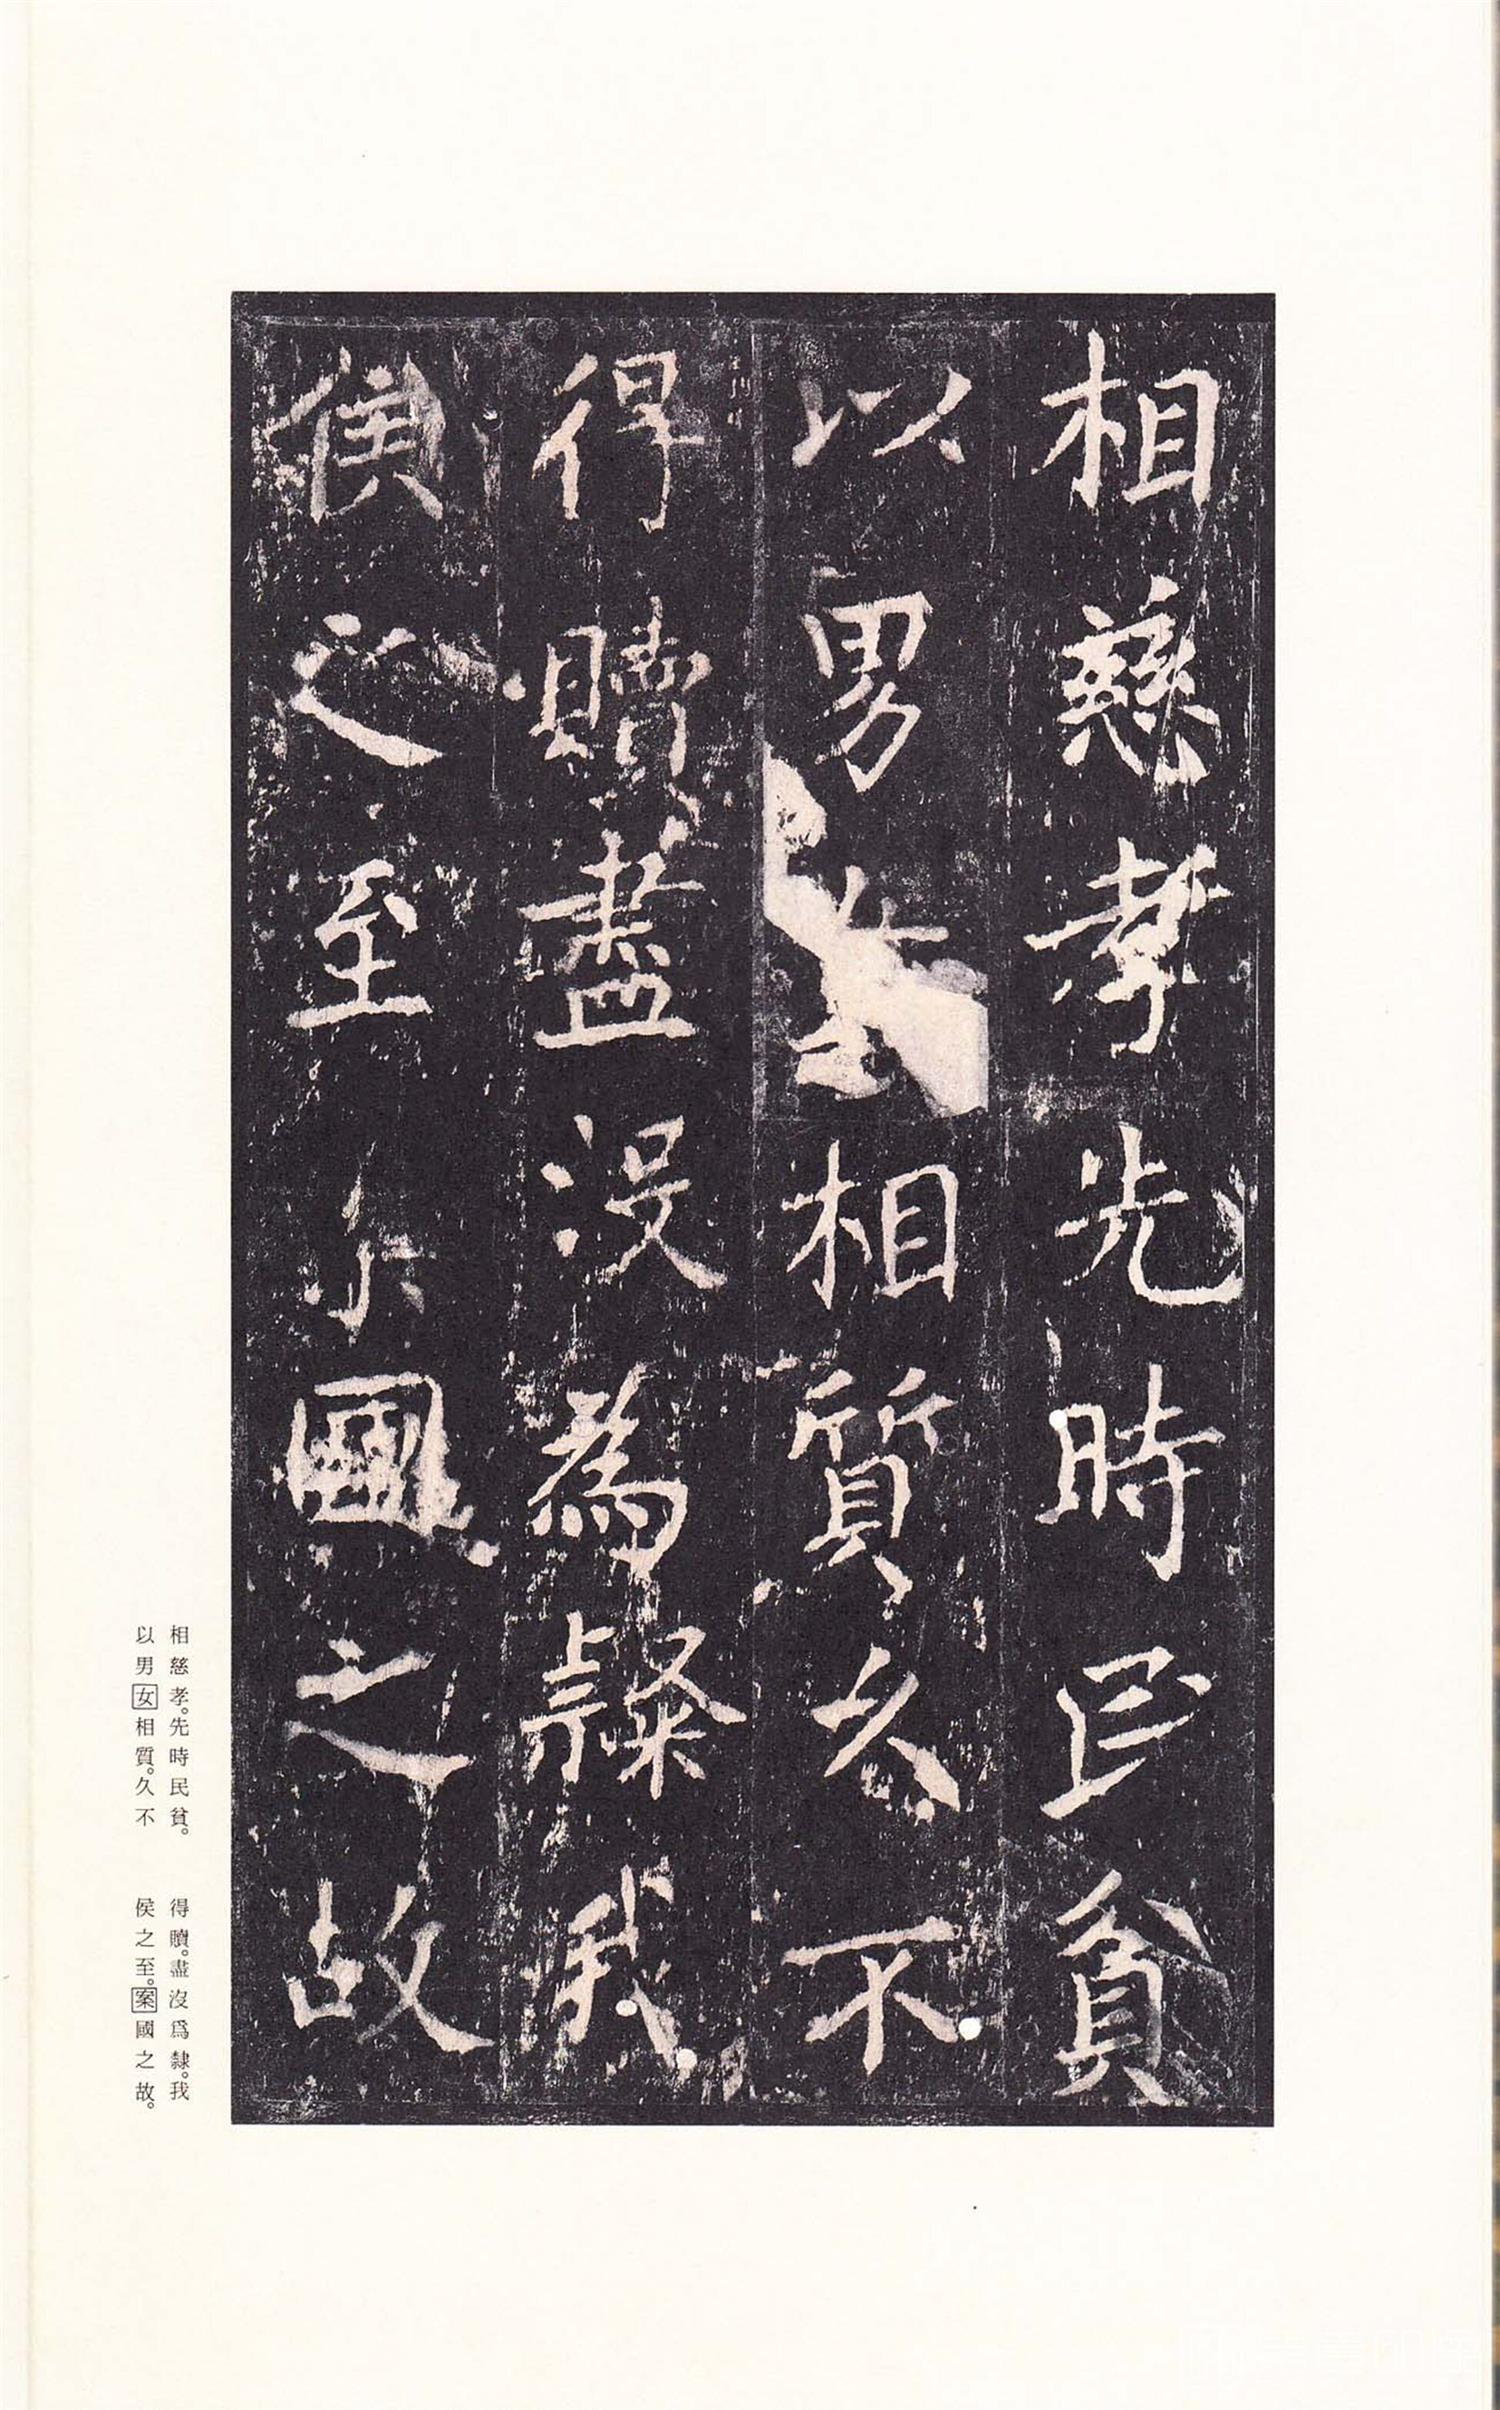 相慈孝先時民貧
以男女相質久不
得贖盡沒為隸我
侯之至
國之故
相慈孝。先時民貧。
以男女相質。久不
得贖。盡沒爲隸。我
侯之至。案國之故。